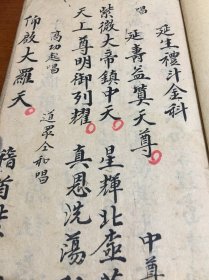 延生禮斗金科
唱
延壽益算天尊
中尊
紫微大帝鎮中天
星輝北
天上尊明御列耀
真恩洗蕩
高功起唱
道眾仝和唱
俯啟大羅天
稽首